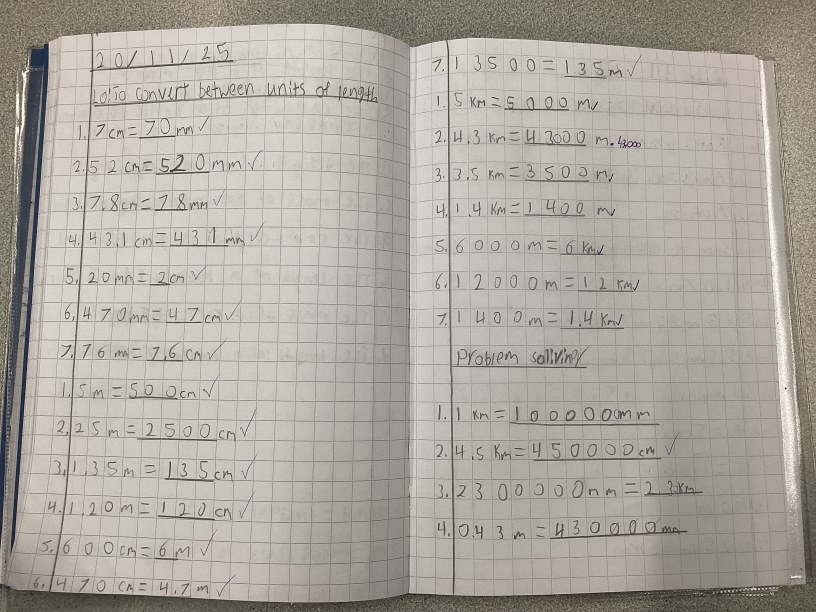 20/11/25
LO: To convert between units of length
1. 7cm = 70mm ✓
2. 52cm = 520mm ✓
3. 7.8cm = 78mm ✓
4. 43.1cm = 431mm ✓
5. 20mm = 2cm ✓
6. 470mm = 47cm ✓
7. 76mm = 7.6cm ✓
1. 5m = 500cm ✓
2. 25m = 2500cm ✓
3. 1.35m = 135cm ✓
4. 1.20m = 120cm ✓
5. 600cm = 6m ✓
6. 470cm = 4.7m ✓
7. 13500 = 135m ✓
1. 5Km = 5000m ✓
2. 4.3Km = 4300m. 43000
3. 3.5Km = 3500m ✓
4. 1.4Km = 1400m ✓
5. 6000m = 6Km ✓
6. 12000m = 12Km ✓
7. 1400m = 1.4Km ✓
Problem
1. 1Km = 1000000mm
2. 4.5Km = 450000cm ✓
3. 2300000mm = 2.3Km
4. 0.43m = 430000mm